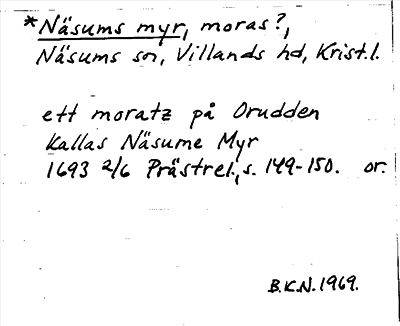 *Näsums myr, moras?,
Näsums sn, Villands hd, Krist.l.
ett moratz på Orudden
kallas Näsume Myr
1693 2/6 Prästrel., s. 149-150. or.
B.K.N. 1969.